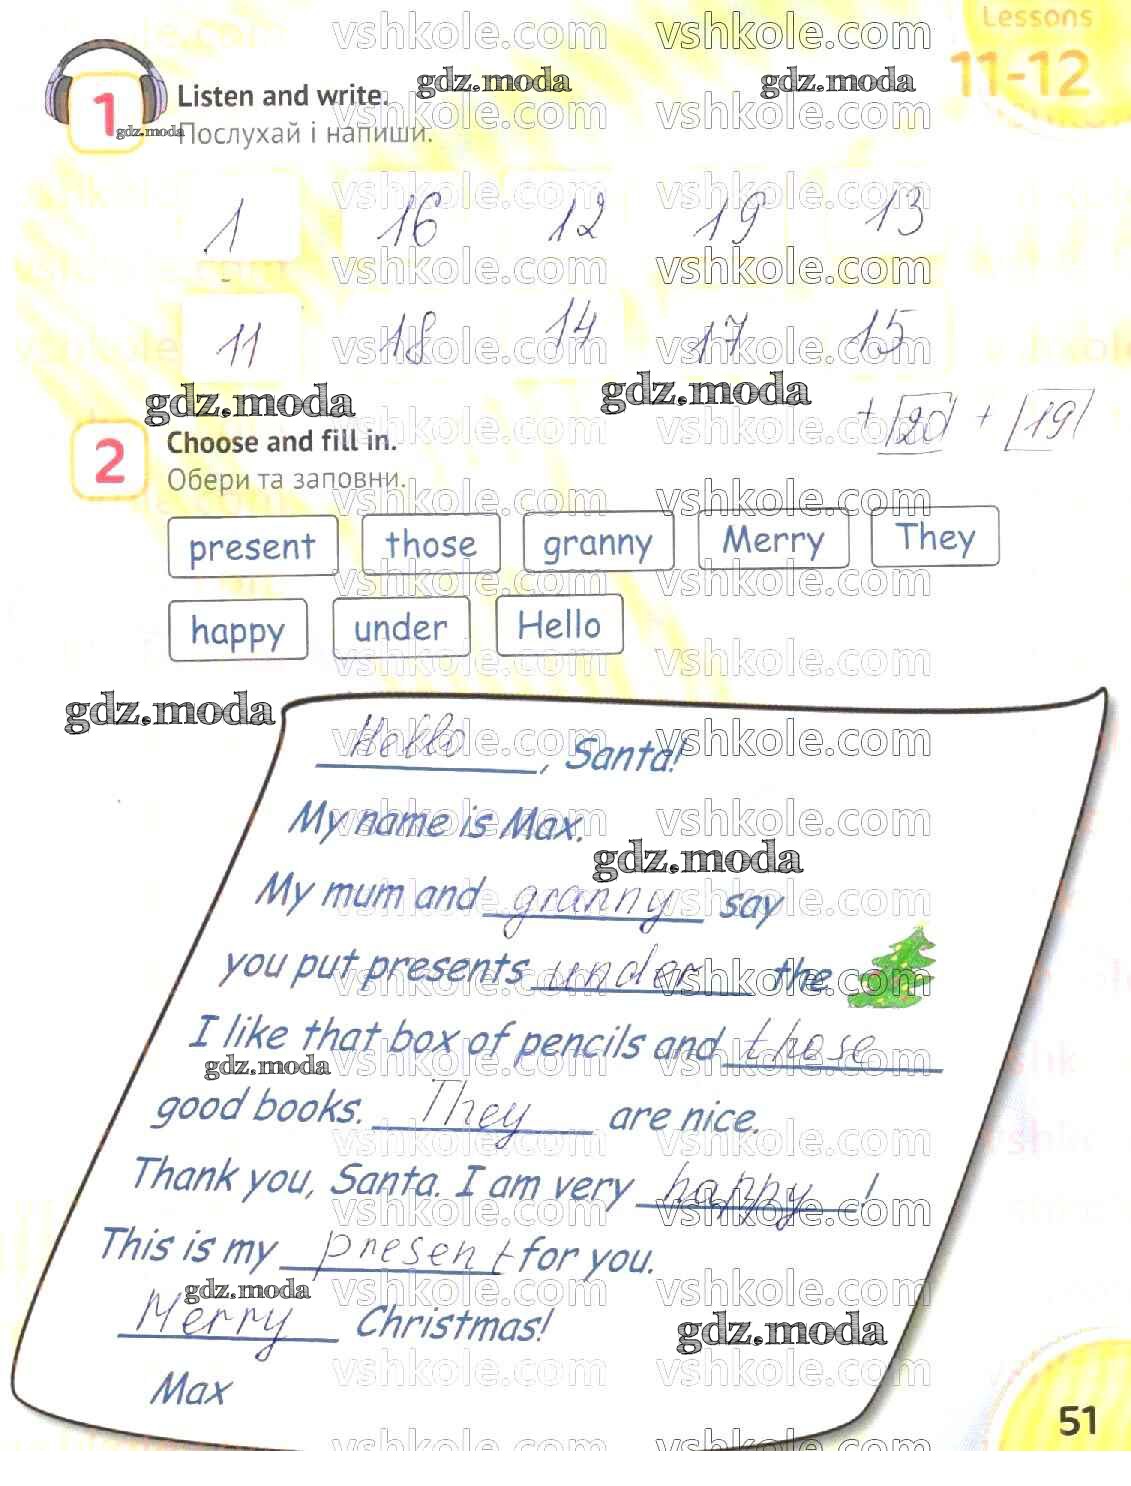 Lessons
11-12
1 Listen and write.
Послухай і напиши.
1 16 12 19 13
11 18 14 17 15
+ 20 + 19
2 Choose and fill in.
Обери та заповни.
present those granny Merry They
happy under Hello
Hello, Santa!
My name is Max.
My mum and granny say
you put presents under the
I like that box of pencils and those
good books. They are nice.
Thank you, Santa. I am very happy!
This is my present for you.
Merry Christmas!
Max
51
vshkole.com
gdz.moda